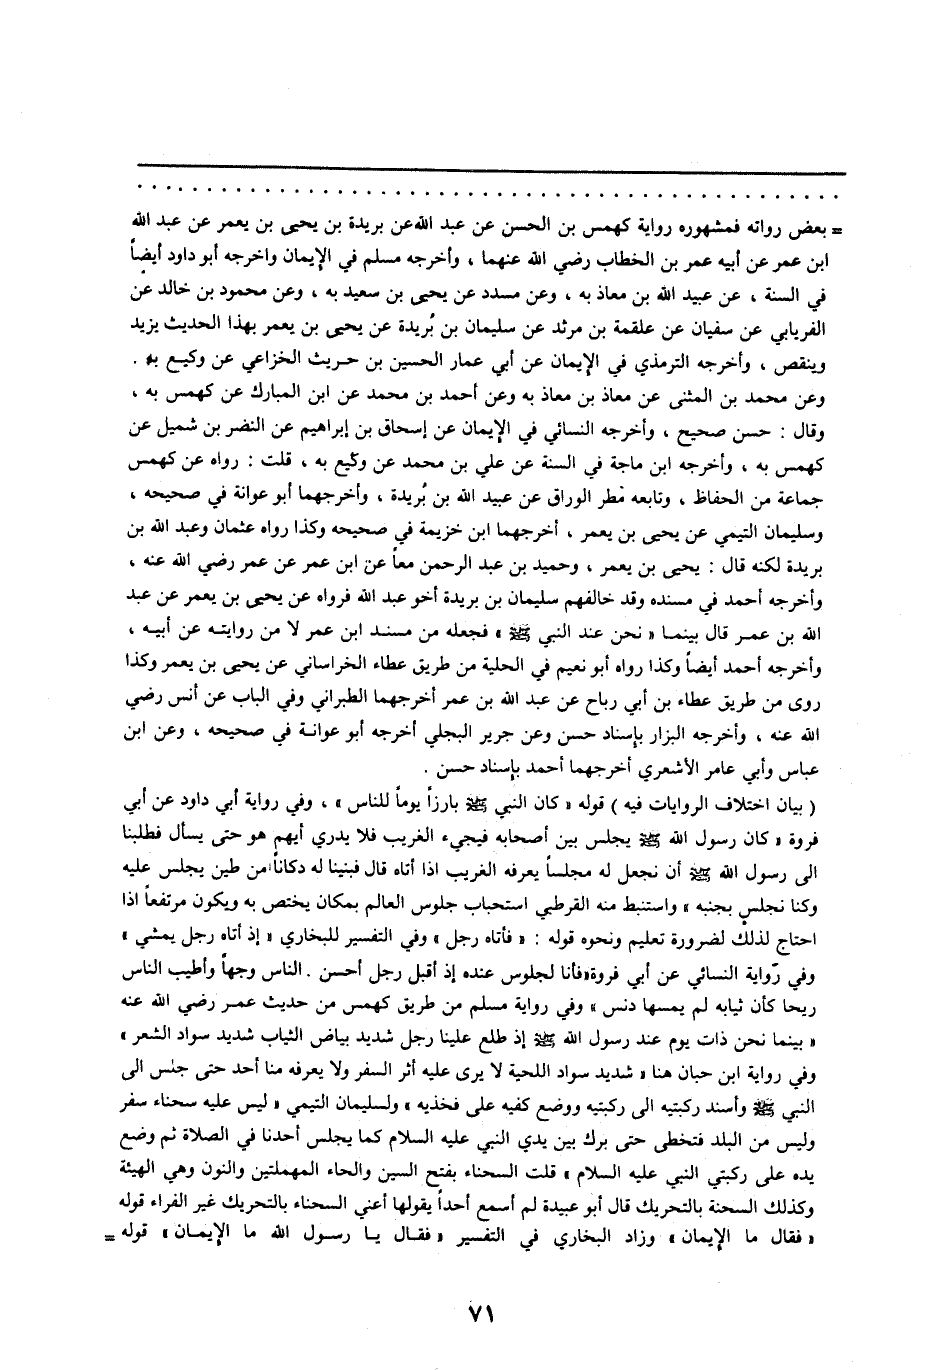 = بعض رواته فمشهوره رواية كهمس بن الحسن عن عبد الله عن بريدة بن يحيى بن يعمر عن عبد الله
ابن عمر عن أبيه عمر بن الخطاب رضي الله عنهما ، وأخرجه مسلم في الإيمان واخرجه أبو داود أيضاً
في السنة ، عن عبيد الله بن معاذ به ، وعن مسدد عن يحيى بن سعيد به ، وعن محمود بن خالد عن
الفريابي عن سفيان عن علقمة بن مرثد عن سليمان بن بُريدة عن يحيى بن يعمر بهذا الحديث يزيد
وينقص ، وأخرجه الترمذي في الإيمان عن أبي عمار الحسين بن حريث الخزاعي عن وكيع به .
وعن محمد بن المثنى عن معاذ بن معاذ به وعن أحمد بن محمد عن ابن المبارك عن كهمس به ،
وقال : حسن صحيح ، وأخرجه النسائي في الإيمان عن إسحاق بن إبراهيم عن النضر بن شميل عن
كهمس به ، وأخرجه ابن ماجة في السنة عن علي بن محمد عن وكيع به ، قلت : رواه عن كهمس
جماعة من الحفاظ ، وتابعه مَطر الوراق عن عبيد الله بن بُريدة ، وأخرجهما أبو عوانة في صحيحه ،
وسليمان التيمي عن يحيى بن يعمر ، أخرجهما ابن خزيمة في صحيحه وكذا رواه عثمان وعبد الله بن
بريدة لكنه قال : يحيى بن يعمر ، وحميد بن عبد الرحمن معاً عن ابن عمر عن عمر رضي الله عنه ،
وأخرجه أحمد في مسنده وقد خالفهم سليمان بن بريدة أخو عبد الله فرواه عن يحيى بن يعمر عن عبد
الله بن عمـر قال بينمـا « نحن عند النبي ﷺ » فجعله من مسنـد ابن عمر لا من روايتـه عن أبيـه ،
وأخرجه أحمد أيضاً وكذا رواه أبو نعيم في الحلية من طريق عطاء الخراساني عن يحيى بن يعمر وكذا
روى من طريق عطاء بن أبي رباح عن عبد الله بن عمر أخرجهما الطبراني وفي الباب عن أنس رضي
الله عنه ، وأخرجه البزار بإسناد حسن وعن جرير البجلي أخرجه أبو عوانـة في صحيحه ، وعن ابن
عباس وأبي عامر الأشعري أخرجهما أحمد بإسناد حسن .
( بيان اختلاف الروايات فيه ) قوله « كان النبي ﷺ بارزاً يوماً للناس » ، وفي رواية أبي داود عن أبي
فروة « كان رسول الله ﷺ يجلس بين أصحابه فيجيء الغريب فلا يدري أيهم هو حتى يسأل فطلبنا
الى رسول الله ﷺ أن نجعل له مجلساً يعرفه الغريب اذا أتاه قال فبنينا له دكاناً من طين يجلس عليه
وكنا نجلس بجنبه » واستنبط منه القرطبي استحباب جلوس العالم بمكان يختص به ويكون مرتفعاً اذا
احتاج لذلك لضرورة تعليم ونحوه قوله : « فأتاه رجل » وفي التفسير للبخاري « إذ أتاه رجل يمشي »
وفي رواية النسائي عن أبي فروة «فأنا لجلوس عنده إذ أقبل رجل أحسن . الناس وجهاً وأطيب الناس
ريحا كأن ثيابه لم يمسها دنس » وفي رواية مسلم من طريق كهمس من حديث عمـر رضي الله عنه
« بينما نحن ذات يوم عند رسول الله ﷺ إذ طلع علينا رجل شديد بياض الثياب شديد سواد الشعر »
وفي رواية ابن حبان هنا « شديد سواد اللحية لا يرى عليه أثر السفر ولا يعرفه منا أحد حتى جلس الى
النبي ﷺ وأسند ركبتيه الى ركبتيه ووضع كفيه على فخذيه » ولسليمان التيمي « ليس عليه سحناء سفر
وليس من البلد فتخطى حتى برك بين يدي النبي عليه السلام كما يجلس أحدنا في الصلاة ثم وضع
يده على ركبتي النبي عليه السلام » قلت السحناء بفتح السين والحاء المهملتين والنون وهي الهيئة
وكذلك السحنة بالتحريك قال أبو عبيدة لم أسمع أحداً يقولها أعني السحناء بالتحريك غير الفراء قوله
« فقال ما الإيمان » وزاد البخاري في التفسير « فقـال يـا رسـول الله ما الإيمـان » قوله =
٧١